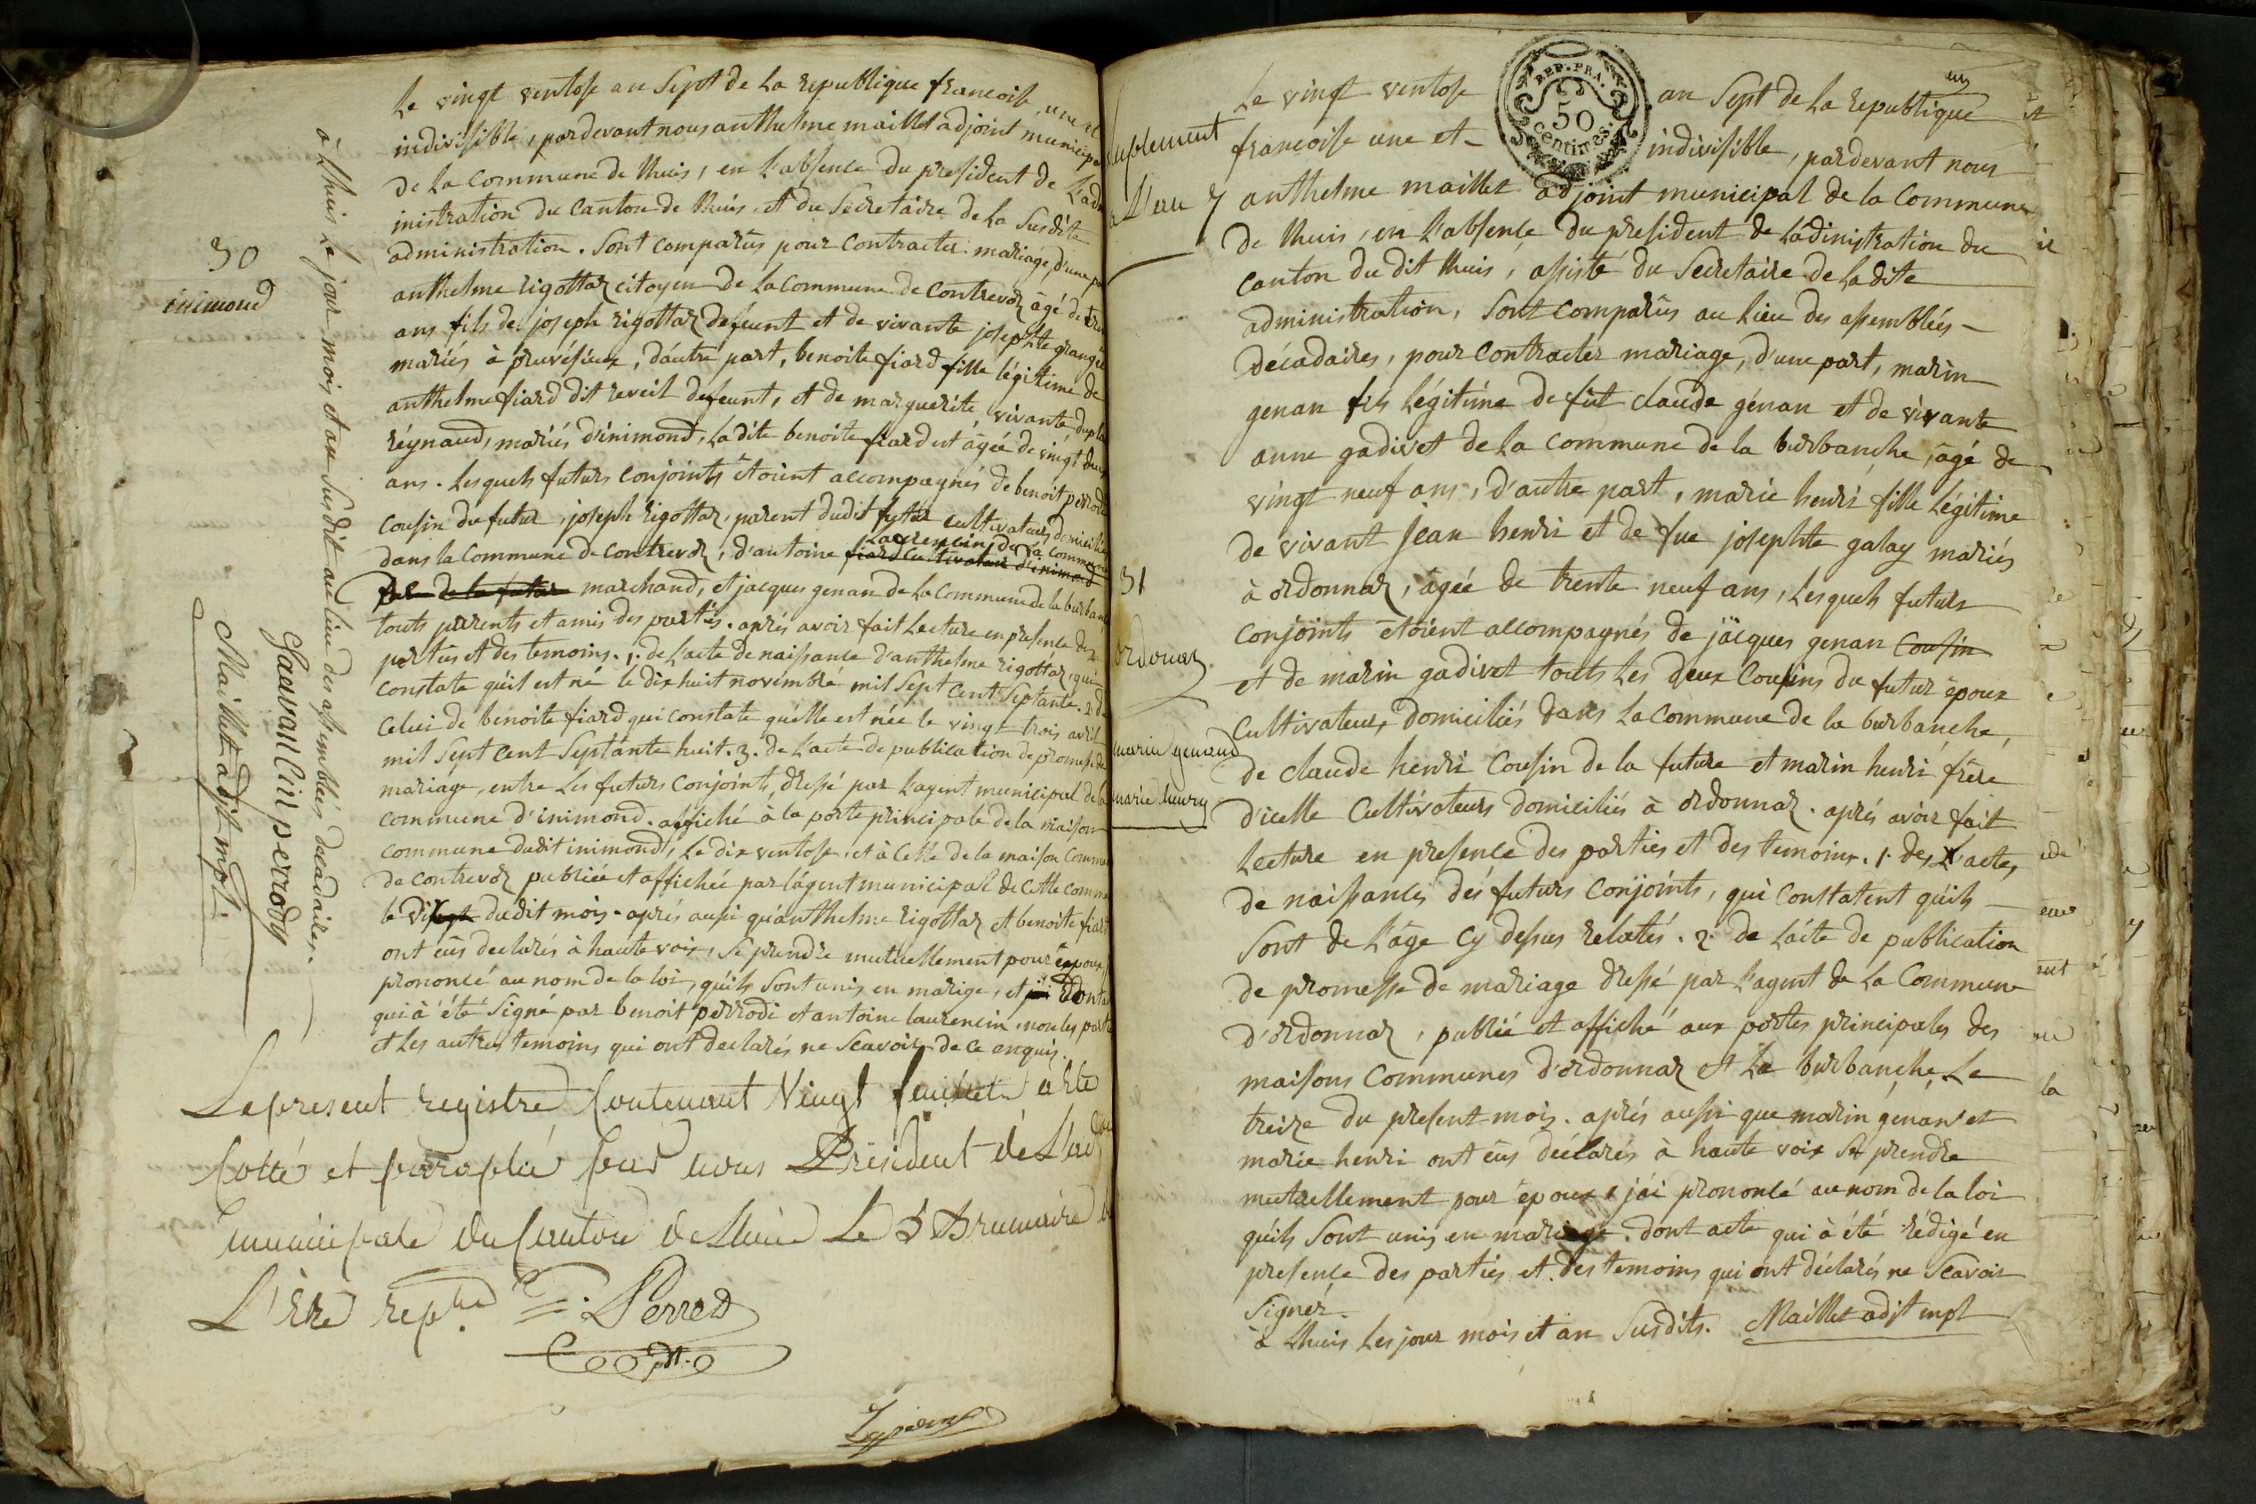 Le vingt ventose an Sept de La republique francoise, une et
indivisible, pardevant nous anthelme maillet adjoint municipa
de La commune de Lhuis, en L'absence du president de L'adm
inistration du Canton de Lhuis et du Secretaire de La Susdite
administration. Sont comparûs pour contracter mariage, d'une p
anthelme rigottaz citoyen de La Commune de Contrevoz âgé de
ans fils de joseph rigottaz defeunt et de vivante josephte
mariés à pruvésieux, d'autre part, benoite fiard fille légitime de
anthelme fiard dit reveil defeunt, et de marguerite vivante
réynaud, mariés d'inimond, Ladite benoite fiard est âgée de vingt
ans. Lesquels futurs conjoints êtoient accompagnés de benoit perrodi
cousin du futur, joseph rigottaz, parent dudit futur cultivateurs
dans la Commune de Contrevoz, d'antoine fiard cultivateur d'inimond
Laurencin de la comm
de la futur marchand, et jacques genan de La Commune de la burbanc
touts parents et amis des partiés. aprés avoir fait Lecture en presence des
partiés et des temoins. 1. de L'acte de naissance d'anthelme rigottaz, qui
constate qu'il est né le dix huit novembre mil Sept Cent Septante. 2. de
Celui de benoite fiard qui constate qu'elle est née le vingt trois avril
mil Sept Cent Septante huit. 3. de L'acte de publication de promesse de
mariage, entre Les futurs conjoints, dressé par L'agent municipal de la
commune d'inimond. affiché à la porte principale de la maison
commune dudit inimond, Le dix ventose, et à Celle de la maison Commu
de Contrevoz publiée et affichée par l'agent municipal de Cette Comm
le dudit mois. aprés aussi qu'anthelme rigottaz et benoite fiard
ont eûs declarés à haute voix, Se prendre mutuellement pour époux
prononcé au nom de la loi, qu'ils Sont unis en marige, et
qui à été Signé par benoit perrodi et antoine laurencin, non les parti
et Les autres temoins qui ont declarés ne Scavoir de ce enquis.
à Lhuis Le jour mois et an Susdit au lieu des assemblées decadaires.
perrody
Maillet adjt mpl.
30
inimond
Le present registre Contenant Vingt feuillets a Eté
Cotté et paraphé par nous President de L'ad
municipale du Canton de Lhuis Le 5 Brumaire
L'Ere rep.
Perret
pdt.
Suplement
31
ordonaz
marin genand
marie henry
Le vingt ventose an Sept de La republique
REP. FRA.
50
centimes.
francoise une et indivisible, pardevant nous
anthelme maillet adjoint municipal de la Commune
de Lhuis, en L'absence du president de L'adinistration du
Canton du dit Lhuis, assisté du Secretaire de Ladite
administration, Sont comparûs au Lieu des assemblées
décadaires, pour Contracter mariage, d'une part, marin
genan fils Légitime de fût claude génan et de vivante
anne gadivet de La commune de la burbanche, âgé de
vingt neuf ans, d'autre part, marie henri fille Légitime
de vivant jean henri et de fue josephte galay mariés
à ordonnaz, âgée de trente neuf ans, Lesquels futurs
Conjoints êtoient accompagnés de jacques genan Cousin
et de marin gadivet touts Les deux Cousins du futur époux
Cultivateurs domiciliés dans La Commune de la burbanche,
de claude henri Cousin de la future et marin henri frére
d'icelle Cultivateurs domiciliés à ordonnaz. aprés avoir fait
Lecture en presence des partiés et des temoins. 1. des actes
de naissances dés futurs Conjoints, qui Constatent qu'ils
Sont de L'âge Cy dessus relatés. 2. de L'acte de publication
de promesse de mariage dressé par L'agent de La Commune
d'ordonnaz, publié et affiché aux portes principales des
maisons Communes d'ordonnaz et La burbanche, Le
treize du present mois. aprés aussi que marin génan et
marie henri ont eûs déclarés à haute voix Se prendre
mutuellement pour époux, j'ai prononcé au nom de la loi
qu'ils Sont unis en mariage. dont acte qui à été rédigé en
presence des partiés et des temoins qui ont déclarés ne Scavoir
Signer
à Lhuis Les jour mois et an Susdits. Maillet adjt mpl